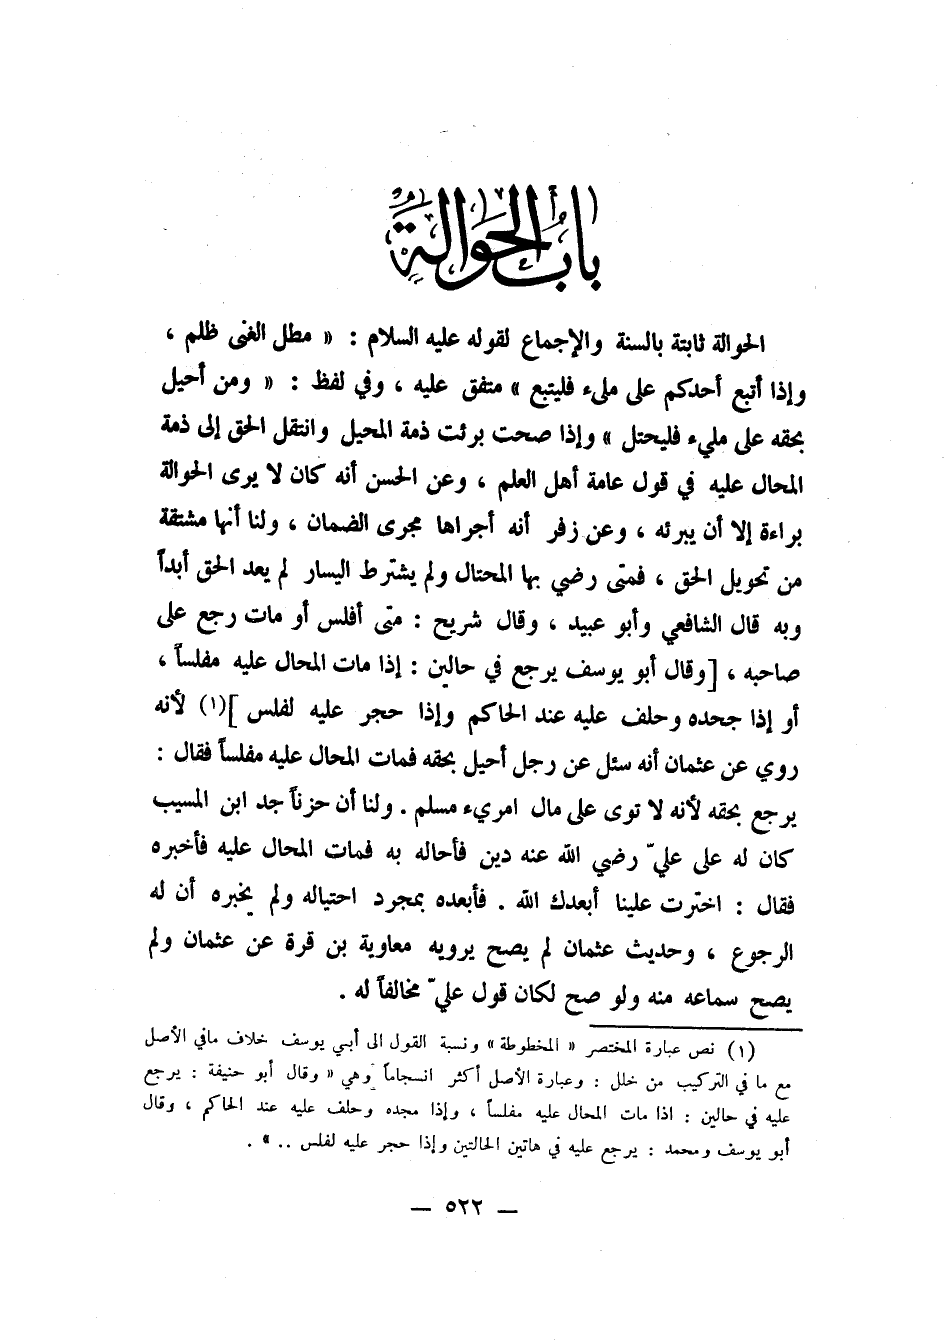 باب الحوالة
الحوالة ثابتة بالسنة والإجماع لقوله عليه السلام : « مطل الغنى ظلم ،
وإذا أتبع أحدكم على مليء فليتبع » متفق عليه ، وفي لفظ : « ومن أحيل
بحقه على مليء فليحتل » وإذا صحت برئت ذمة المحيل وانتقل الحق إلى ذمة
المحال عليه في قول عامة أهل العلم ، وعن الحسن أنه كان لا يرى الحوالة
براءة إلا أن يبرئه ، وعن زفر أنه أجراها مجرى الضمان ، ولنا أنها مشتقة
من تحويل الحق ، فمتى رضي بها المحتال ولم يشترط اليسار لم يعد الحق أبداً
وبه قال الشافعي وأبو عبيد ، وقال شريح : متى أفلس أو مات رجع على
صاحبه ، [وقال أبو يوسف يرجع في حالين : إذا مات المحال عليه مفلساً ،
أو إذا جحده وحلف عليه عند الحاكم وإذا حجر عليه لفلس ](١) لأنه
روي عن عثمان أنه سئل عن رجل أحيل بحقه فمات المحال عليه مفلساً فقال :
يرجع بحقه لأنه لا توى على مال امريء مسلم . ولنا أن حزناً جد ابن المسيب
كان له على عليّ رضي الله عنه دين فأحاله به فمات المحال عليه فأخبره
فقال : اخترت علينا أبعدك الله . فأبعده بمجرد احتياله ولم يخبره أن له
الرجوع ، وحديث عثمان لم يصح يرويه معاوية بن قرة عن عثمان ولم
يصح سماعه منه ولو صح لكان قول عليّ مخالفاً له .
(١) نص عبارة المختصر « المخطوطة » ونسبة القول الى أبي يوسف خلاف مافي الأصل
مع ما في التركيب من خلل : وعبارة الأصل أكثر انسجاماً وهي « وقال أبو حنيفة : يرجع
عليه في حالين : اذا مات المحال عليه مفلساً ، وإذا مجده وحلف عليه عند الحاكم ، وقال
أبو يوسف ومحمد : يرجع عليه في هاتين الحالتين وإذا حجر عليه لفلس .. » .
— ٥٢٢ —